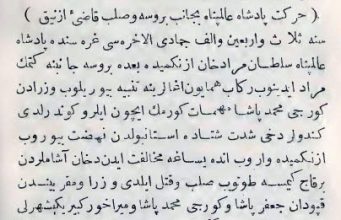 ( حركت پادشاه عالمپناه بجانب بروسه وصلب قاضئ ازنيق )
سنه ثلاث واربعين والف جمادى الاخره سى غره سنده پادشاه
عالمپناه سلطان مراد خان ازنكميده بعده بروسه جانبنه كتمك
مراد ايدينوب ركاب همايون اغالرينه تنبيه بيوريلوب وزرادن
كورجى محمد پاشا مهمات كورمك ايچون ايلرو كوندرلدى
كندولر دخى شدت شتاده استانبولدن نهضت بيوروب
ازنكميده واروب انده يساغه مخالفت ايدن دخان آشاملردن
برقاج كيمسه طوتوب صلب وقتل ايلدى وزرا ومقربيندن
قپودان جعفر پاشا وكورجى محمد پاشا وميراخور كبير يكيشهرلى